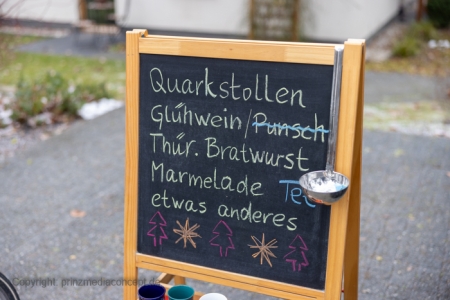 Quarkstollen
Glühwein/Punsch
Thür. Bratwurst
Marmelade Tee
etwas anderes
Copyright prinzmediaconcept.de